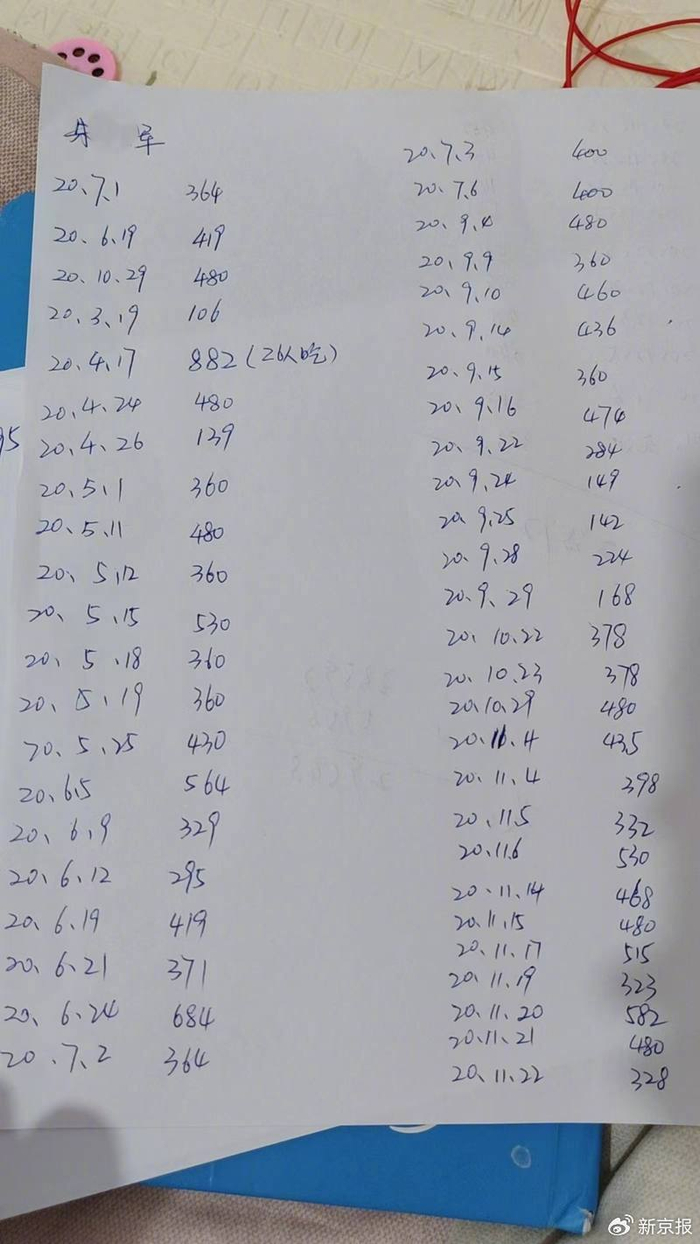 军
20、7、1 364
20、6、19 419
20、10、29 480
20、3、19 106
20、4、17 882(26人吃)
20、4、24 480
95
20、4、26 139
20、5、1 360
20、5、11 480
20、5、12 360
20、5、15 530
20、5、18 360
20、5、19 360
20、5、25 430
20、6、5 564
20、6、9 329
20、6、12 295
20、6、19 419
20、6、21 371
20、6、24 684
20、7、2 364
20、7、3 400
20、7、6 400
20、9、4 480
20、9、9 360
20、9、10 460
20、9、14 436
20、9、15 360
20、9、16 474
20、9、22 284
20、9、24 149
20、9、25 142
20、9、28 224
20、9、29 168
20、10、22 378
20、10、23 378
20、10、29 480
20、11、4 435
20、11、4 398
20、11、5 332
20、11、6 530
20、11、14 468
20、11、15 480
20、11、17 515
20、11、19 323
20、11、20 582
20、11、21 480
20、11、22 328
新京报